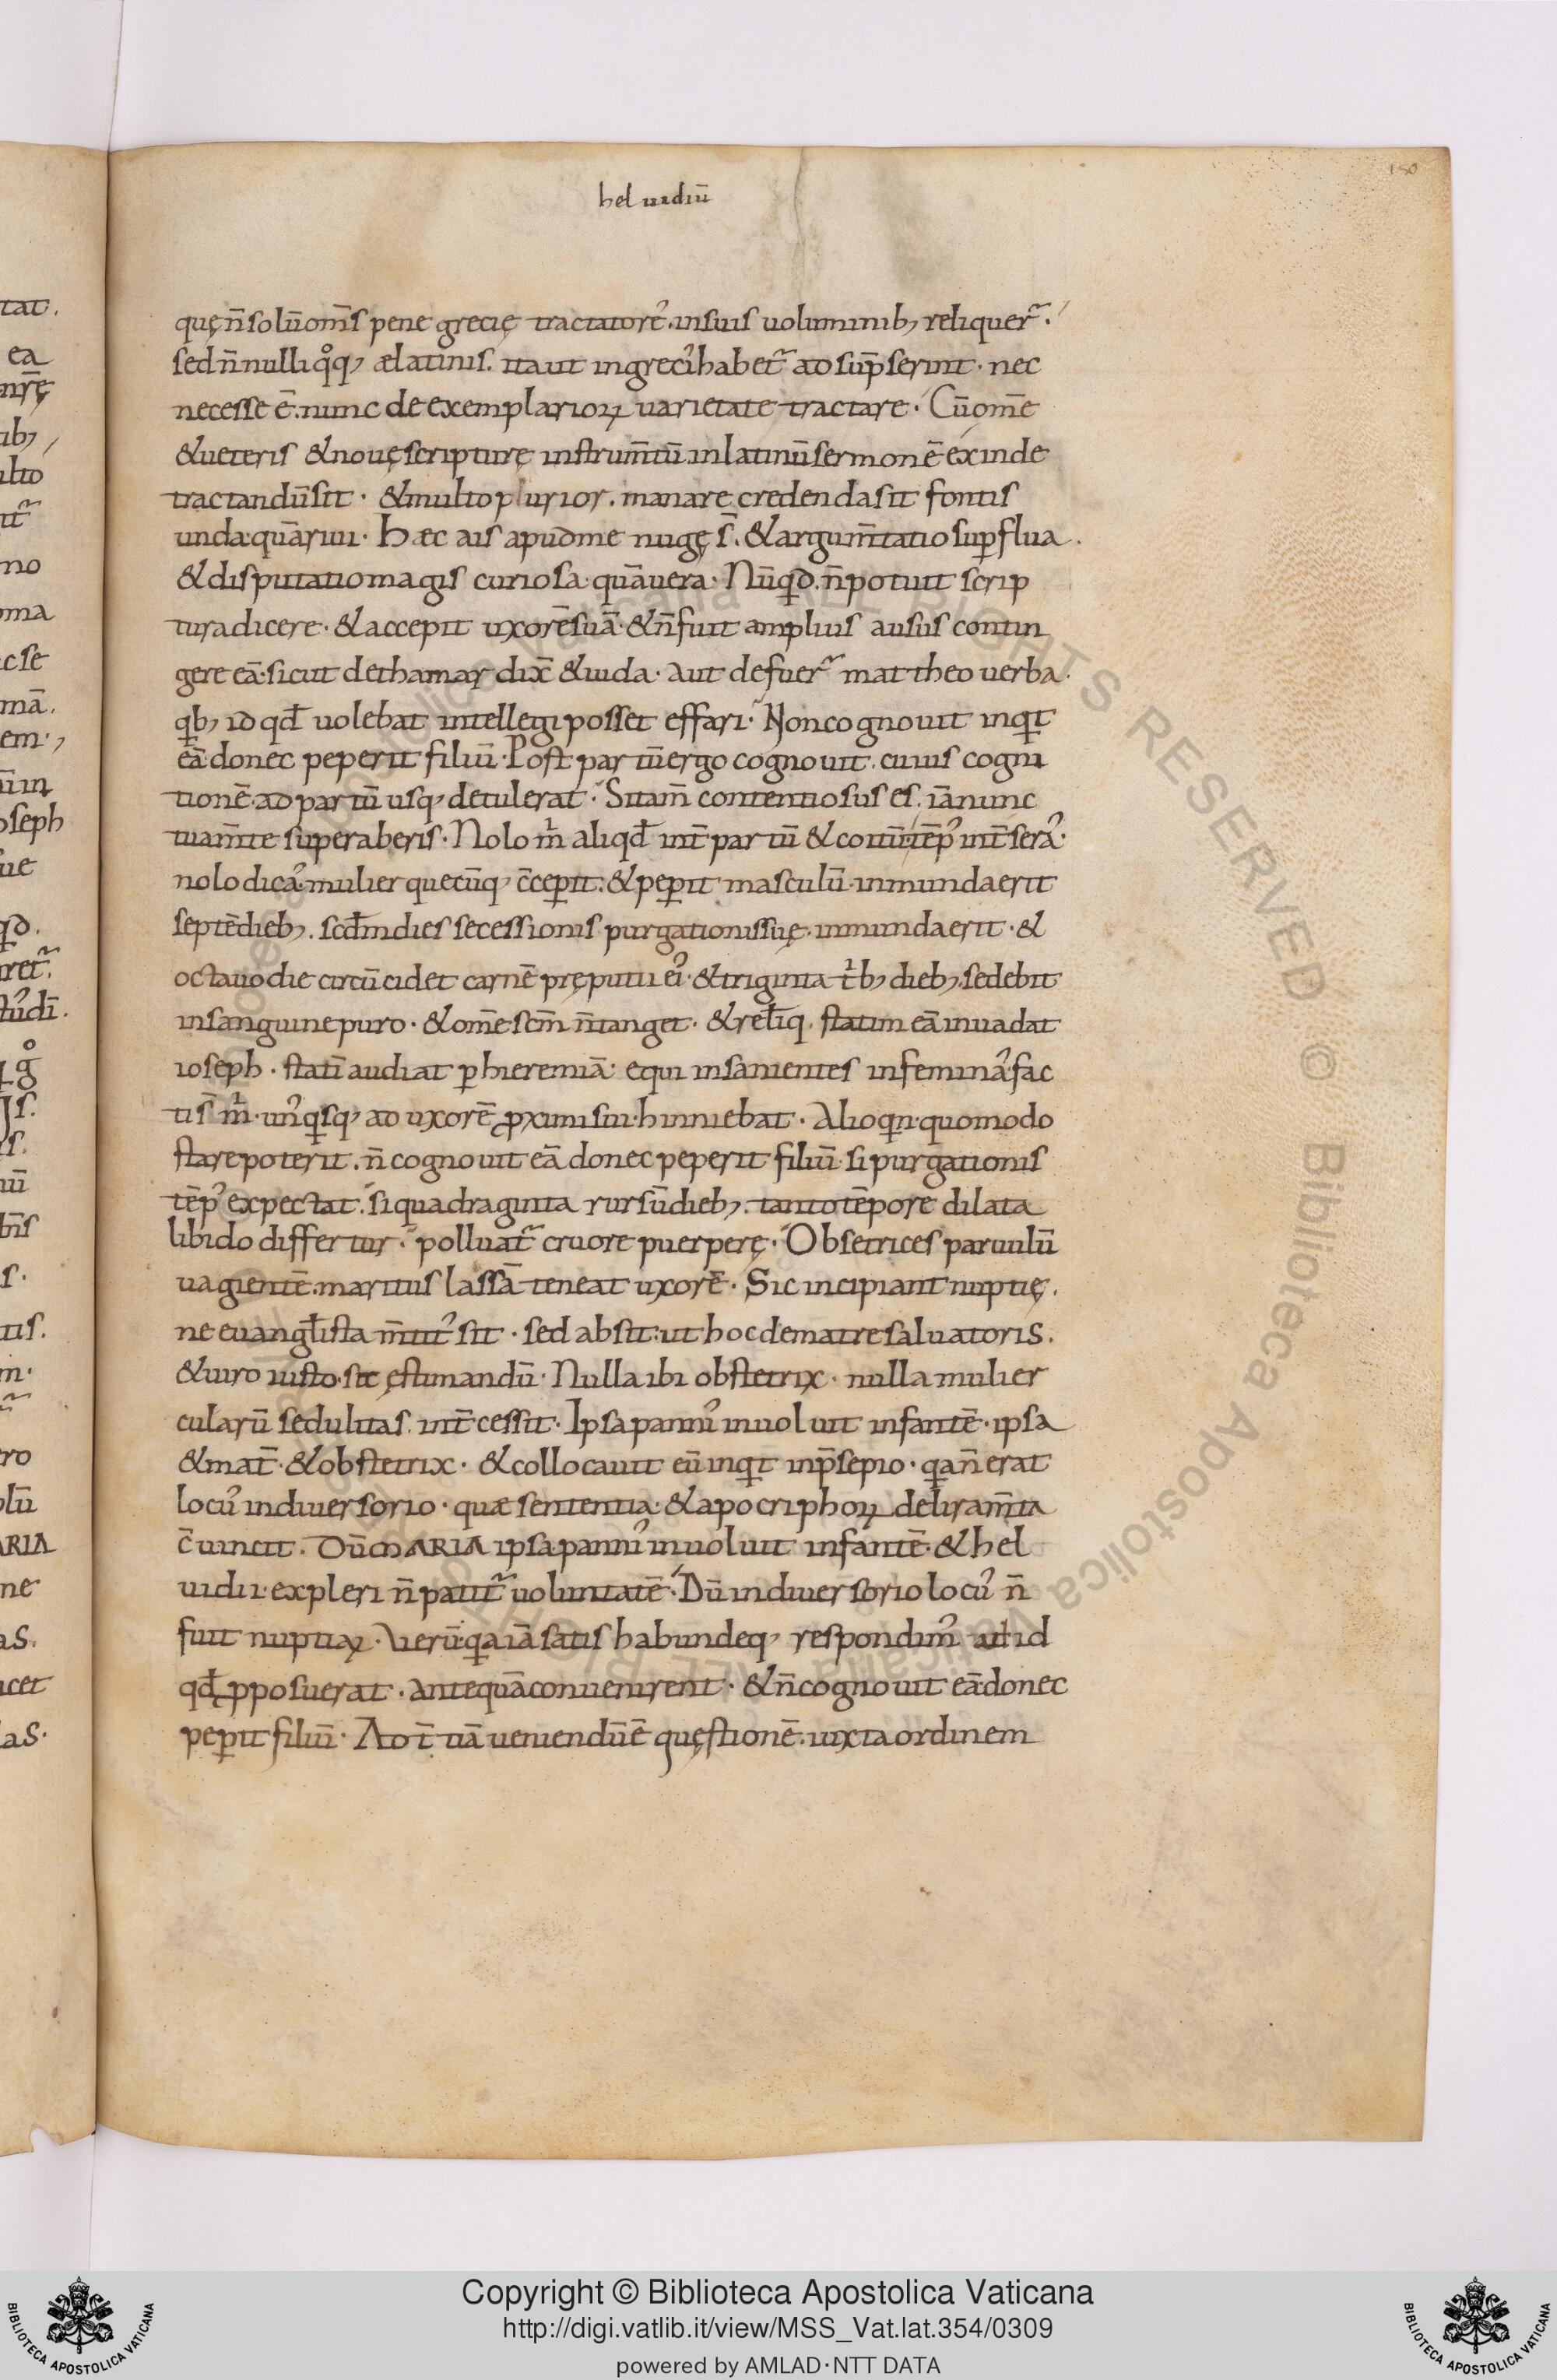 150
hel uidiū
quę n̄ solū om̄s pene grecię tractatore᷒. in suis uoluminib; reliquer̃.
sed n̄ nulli qͦq; æ latinis. ita ut in greci᷒ habet̃ ad sup̄serint. nec
necesse ē. nunc de exemplarioꝝ uarietate tractare. Cū om̄e
& ueteris & nouę scripturę instrum̄tū. in latinū sermonē exinde
tractandū sit. & multo p urior. manare credenda sit fontis
unda quā riui. Hæc ais apud me nugę s̄. & argum̄tatio suꝑflua.
& disputatio magis curiosa quā uera. Nūqd. n̄ potuit scrip
tura dicere. & accepit uxorē suā. & n̄ fuit amplius ausus contin
gere eā. sicut de thamar dix̄ & iuda. aut defuer̃ mattheo uerba.
qb; id qđ uolebat intellegi posset effari. Non cognouit inqt
eā donec peperit filiū. Post partū ergo cognouit. cuius cogni
tionē. ad partū usq; detulerat. Si tam̄ contentiosus es. iā nunc
tua m̄te superaberis. Nolo m̄ aliqđ int̄ partū & coitū tēp᷒ int̄sera᷒.
nolo dica᷒. mulier quecūq; c̄ceꝑit. & peꝑit masculū. inmunda erit
septē dieb;. scđm dies secessionis purgationis suę. inmunda erit. &
octauo die circūcidet carnē pręputii ei᷒. & triginta tb; dieb; sedebit
in sanguine puro. & om̄e scm̄ n̄ tanget. & reliq. statim eā inuadat
ioseph. statī audiat ꝑ hieremiā. equi insanientes in femina᷒ fac
ti s̄ m. un᷒qsq; ad uxorē ꝓximi sui. hinniebat. Alioqn quomodo
stare poterit. n̄ cognouit eā donec peperit filiū. si purgationis
tēp᷒ expectat. si quadraginta rursū dieb;. tanto tēpore dilata
libido differtur. polluat̃ cruore puerperę. Obsetrices paruulū
uagientē. maritus lassā teneat uxorē. Sic incipiant nuptię.
ne euanglista m̄tit᷒ sit. sed absit. ut hoc de matre saluatoris.
& uiro iusto. sit ęstimandū. Nulla ibi obstetrix. nulla mulier
cularū sedulitas. int̄cessit. Ipsa panni᷒ inuoluit infantē. ipsa
& mat̄. & obstetrix. & collocauit eū inqt in p̄sepio. qa n̄ erat
locu᷒ in diuersorio. quæ sententia. & apocriphoꝝ deliram̄ta
c̄uincit. Dū MARIA ipsa panni᷒ inuoluit infantē. & hel
uidii expleri n̄ patit̃ uoluntatē. Dū in diuersorio locu᷒ n̄
fuit nuptiaꝝ. Verū qa iā satis habundeq; respondim᷒ ut id
qđ ꝓposuerat. antequā conuenirent. & n̄ cognouit eā donec
peꝑit filiū. Ad t̄tiā ueniendū ē quęstionē. iuxta ordinem
tat.
ea
nrę
ib;
ulto
mo
oma
c se
mā.
em.
oseph
ue
qd.
ret̃.
s.
nū
tis.
m.
ro
olū
ARIA
ne
as.
icet
las.
© Biblioteca Apostolica Vaticana ALL RIGHTS RESERVED
Copyright © Biblioteca Apostolica Vaticana
http://digi.vatlib.it/view/MSS_Vat.lat.354/0309
powered by AMLAD·NTT DATA
BIBLIOTECA APOSTOLICA VATICANA
BIBLIOTECA APOSTOLICA VATICANA